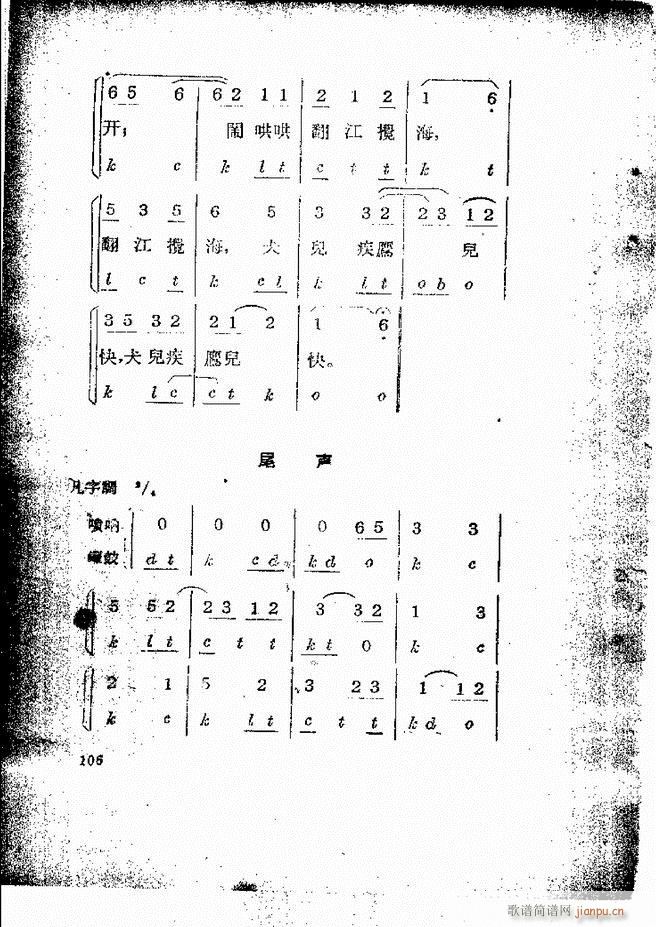 6 5 6 | 6 2 1 1 | 2 1 2 | 1 6
开; 鬧 哄哄 翻 江 攪 海,
k c | k l t | c t t | k t
5 3 5 | 6 5 | 3 3 2 | 2 3 1 2
翻 江 攪 海, 犬 兒 疾 鷹 兒
l c t | k c l | k l t | o b o
3 5 3 2 | 2 1 2 | 1 6
快, 犬 兒 疾 鷹 兒 快。
k l c | c t k | o o
尾 声
凡字調 2/4
嗩吶 0 0 | 0 0 | 0 6 5 | 3 3
d t k | c d | k d o | k c
5 5 2 | 2 3 1 2 | 3 3 2 | 1 3
k l t | c t t | k t 0 | k c
2 1 | 5 2 | 3 2 3 | 1 1 2
k c | k l t | c t t | k d o
106
歌谱简谱网
jianpu.cn